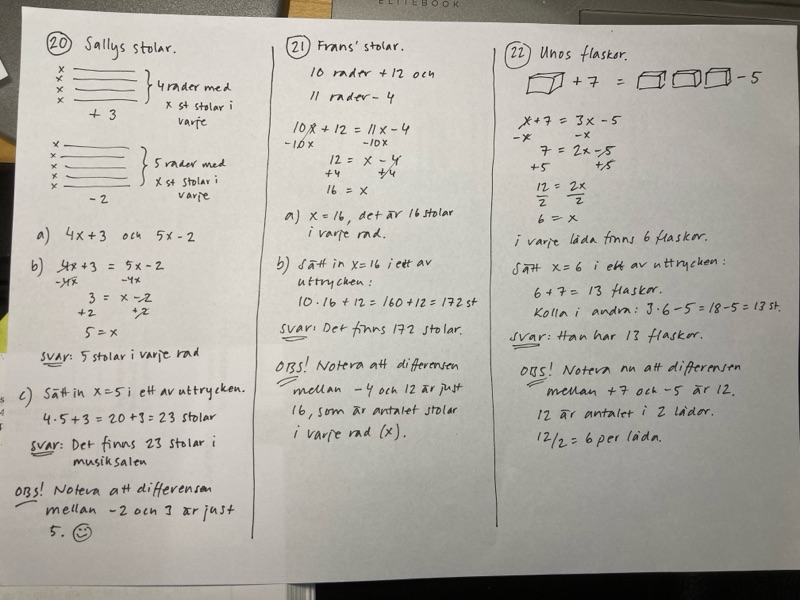 ELITEBOOK
20 Sallys stolar.
x
x
x
x
4 rader med
x st stolar i
varje
+ 3
x
x
x
x
x
5 rader med
x st stolar i
varje
- 2
a) 4x+3 och 5x-2
b) 4x+3 = 5x-2
-4x -4x
3 = x-2
+2 +2
5 = x
svar: 5 stolar i varje rad
c) Sätt in x=5 i ett av uttrycken.
4·5+3 = 20+3 = 23 stolar
svar: Det finns 23 stolar i
musiksalen
OBS! Notera att differensen
mellan -2 och 3 är just
5. ☺
21 Frans' stolar.
10 rader +12 och
11 rader - 4
10x + 12 = 11x - 4
-10x -10x
12 = x - 4
+4 +4
16 = x
a) x = 16, det är 16 stolar
i varje rad.
b) Sätt in x=16 i ett av
uttrycken:
10·16+12 = 160+12 = 172 st
svar: Det finns 172 stolar.
OBS! Notera att differensen
mellan -4 och 12 är just
16, som är antalet stolar
i varje rad (x).
22 Unos flaskor.
+ 7 = - 5
x+7 = 3x-5
-x -x
7 = 2x-5
+5 +5
12 = 2x
2 2
6 = x
i varje låda finns 6 flaskor.
Sätt x=6 i ett av uttrycken:
6+7 = 13 flaskor.
Kolla i andra: 3·6-5 = 18-5 = 13 st.
svar: Han har 13 flaskor.
OBS! Notera nu att differensen
mellan +7 och -5 är 12.
12 är antalet i 2 lådor.
12/2 = 6 per låda.